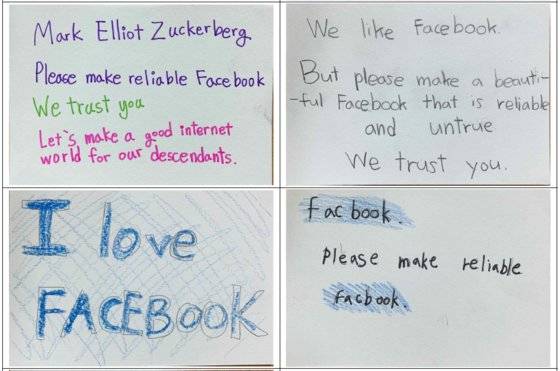 Mark Elliot Zuckerberg
Please make reliable Facebook
We trust you
Let's make a good internet
world for our descendants.
We like Facebook.
But please make a beauti-
-ful Facebook that is reliable
and untrue
We trust you.
I love
FACEBOOK
facbook.
Please make reliable
facbook.